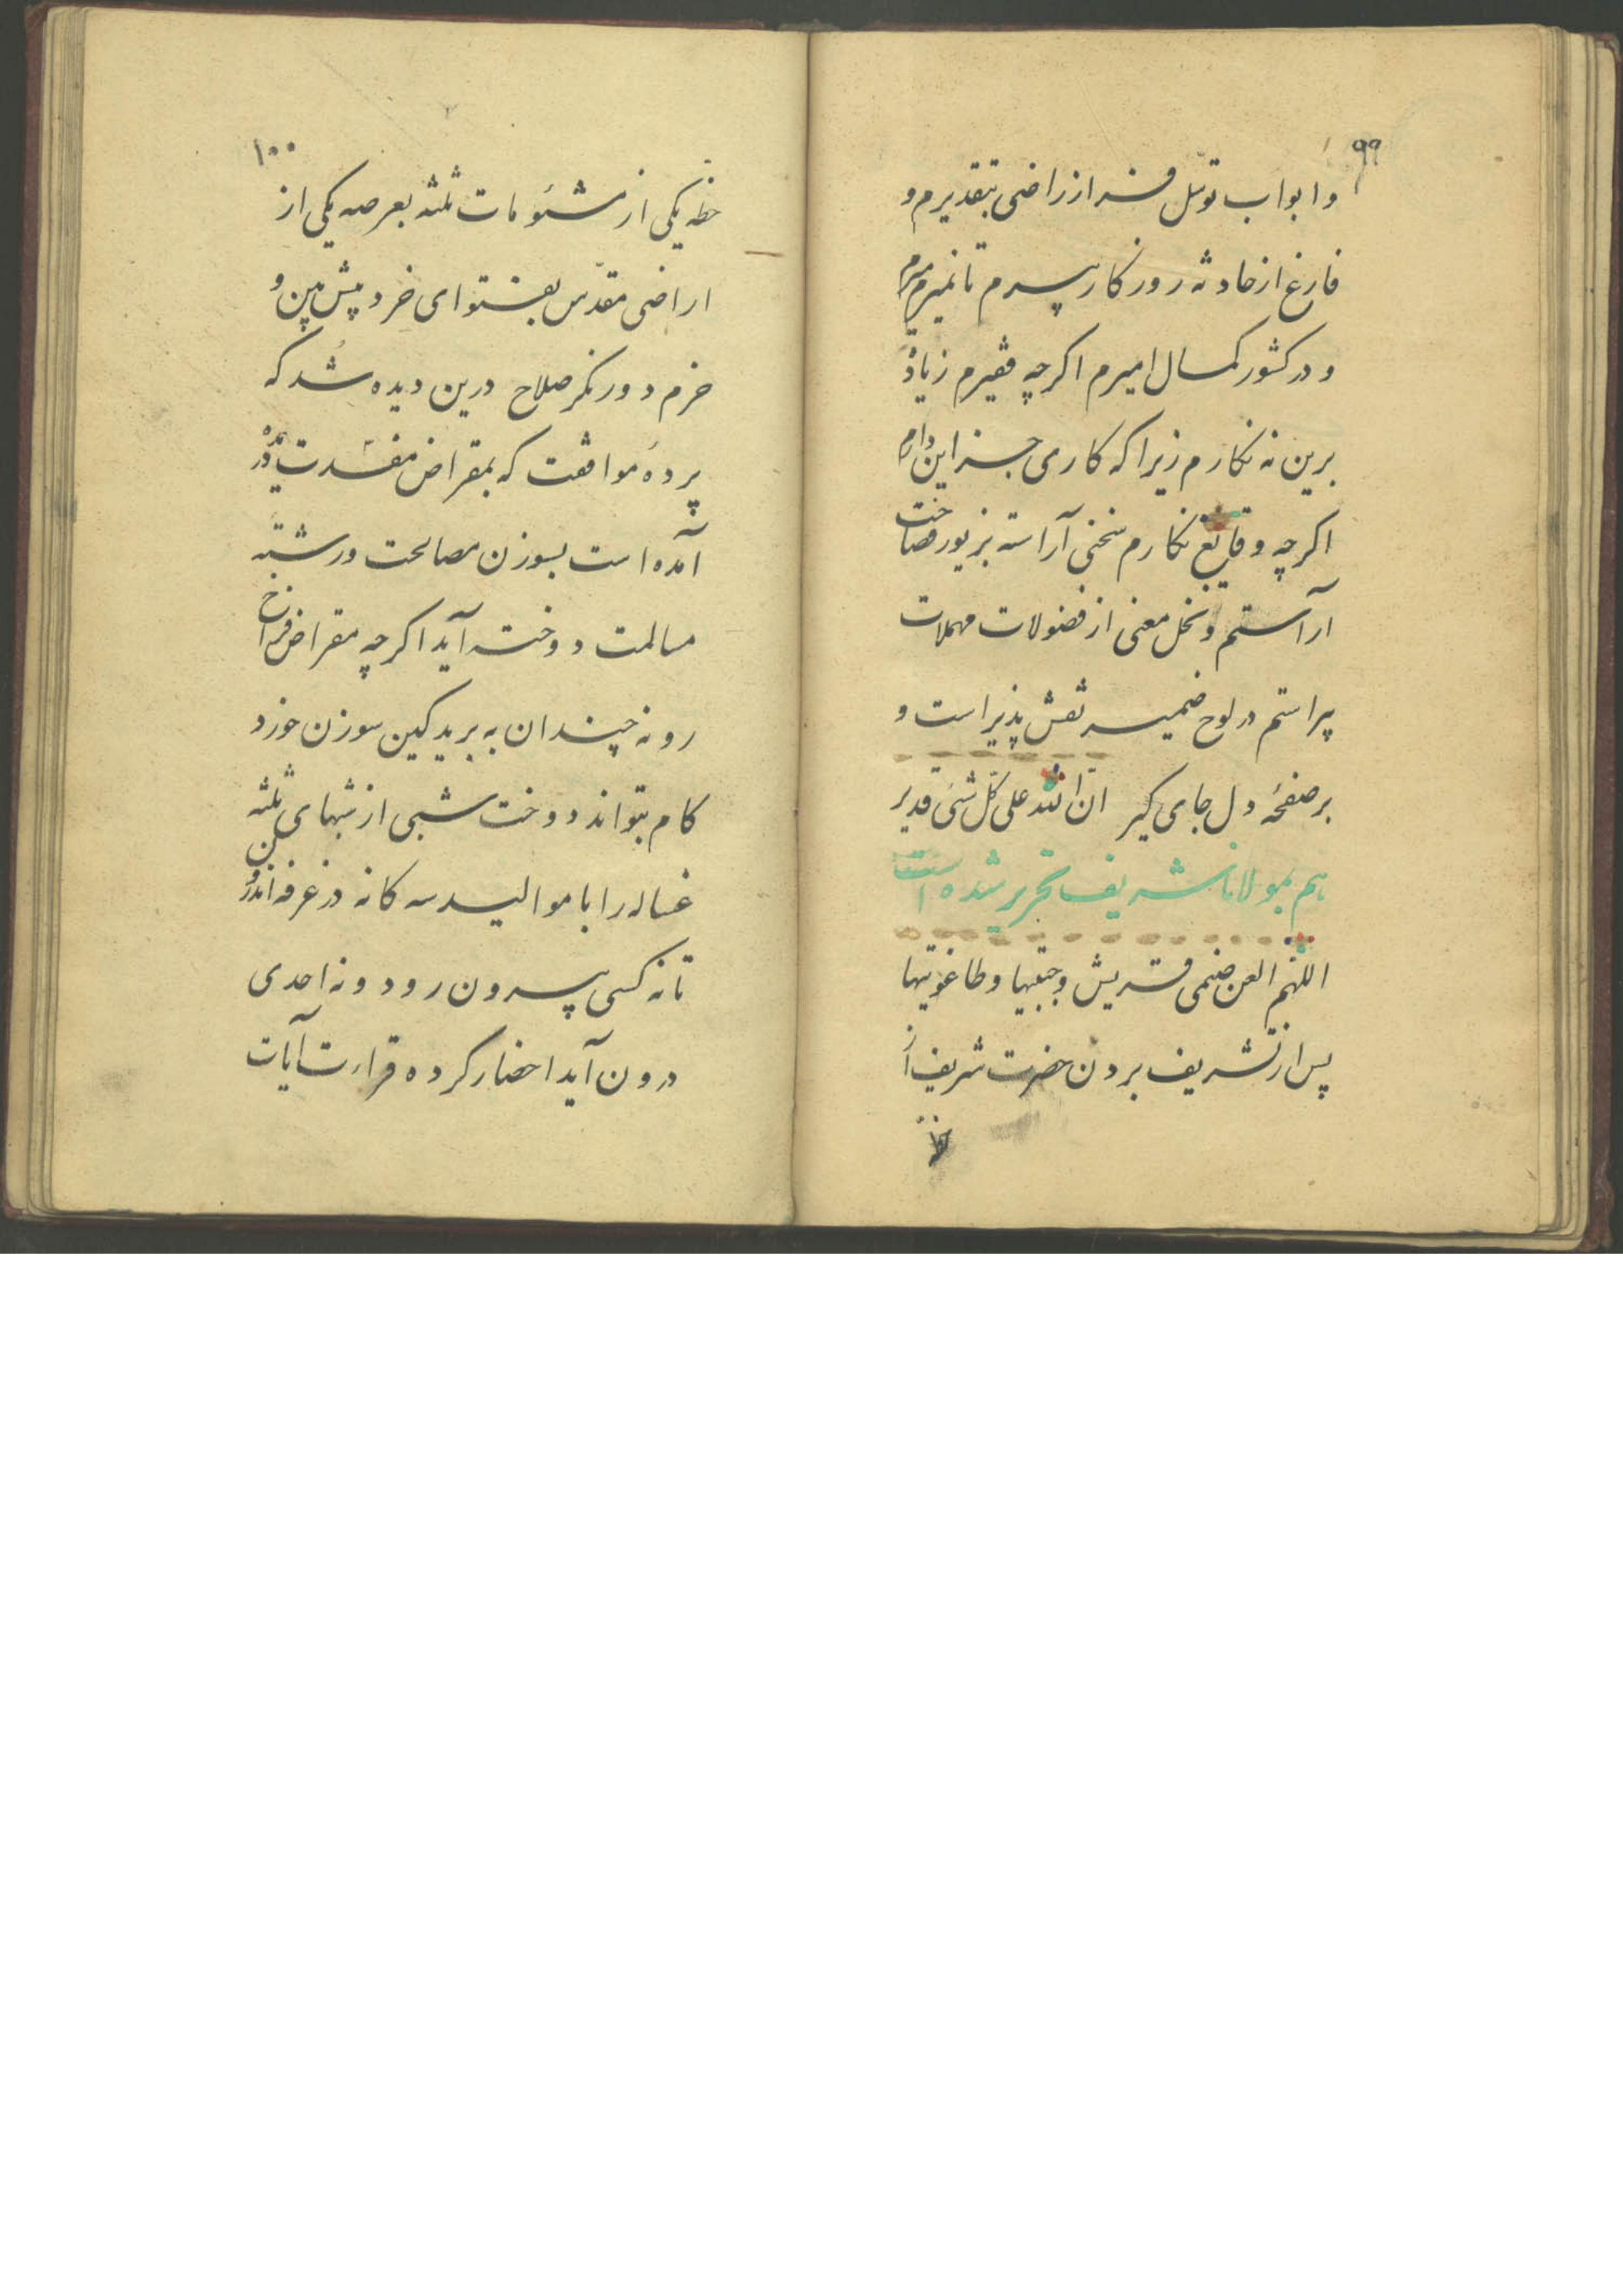 ۹۹
و ابواب توسل فراز راضی بتقدیرم و
فارغ از حادثه روزگار پیرم تا نمیرم
و در کشور کمال امیرم اگر چه فقیرم زیاده
برین نه نگارم زیرا که کاری جز این دارم
اگر چه وقایع نگارم سخنی آراسته بزیور فصاحت
آراستم و نخل معنی از فضولات مهملات
پیراستم در لوح ضمیر نقش پذیر است و
بر صفحهٔ دل جای گیر ان الله علی کل شیء قدیر
هم بمولانا شریف تحریر شده است
اللهم العن صنمی قریش وجبتیها وطاغوتیها
پس از تشریف بردن حضرت شریف از
خطه
۱۰۰
خطه یکی از مشئومات ثلثه بعرصه یکی از
اراضی مقدس بفتوای خرد پیش بین و
خرم دور نگر صلاح درین دیده شد که
پردهٔ موافقت که بمقراض مفسدت
آمده است بسوزن مصالحت و رشته
مسالمت دوخته آید اگر چه مقراض فراخ
رو نه چندان به برید کین سوزن خورد
کام بتواند دوخت شبی از شبهای ثلثه
غساله را با موالید سه کانه در غرفه اندرون
تا نه کسی بیرون رود و نه احدی
درون آید احضار کرده قراءت آیات